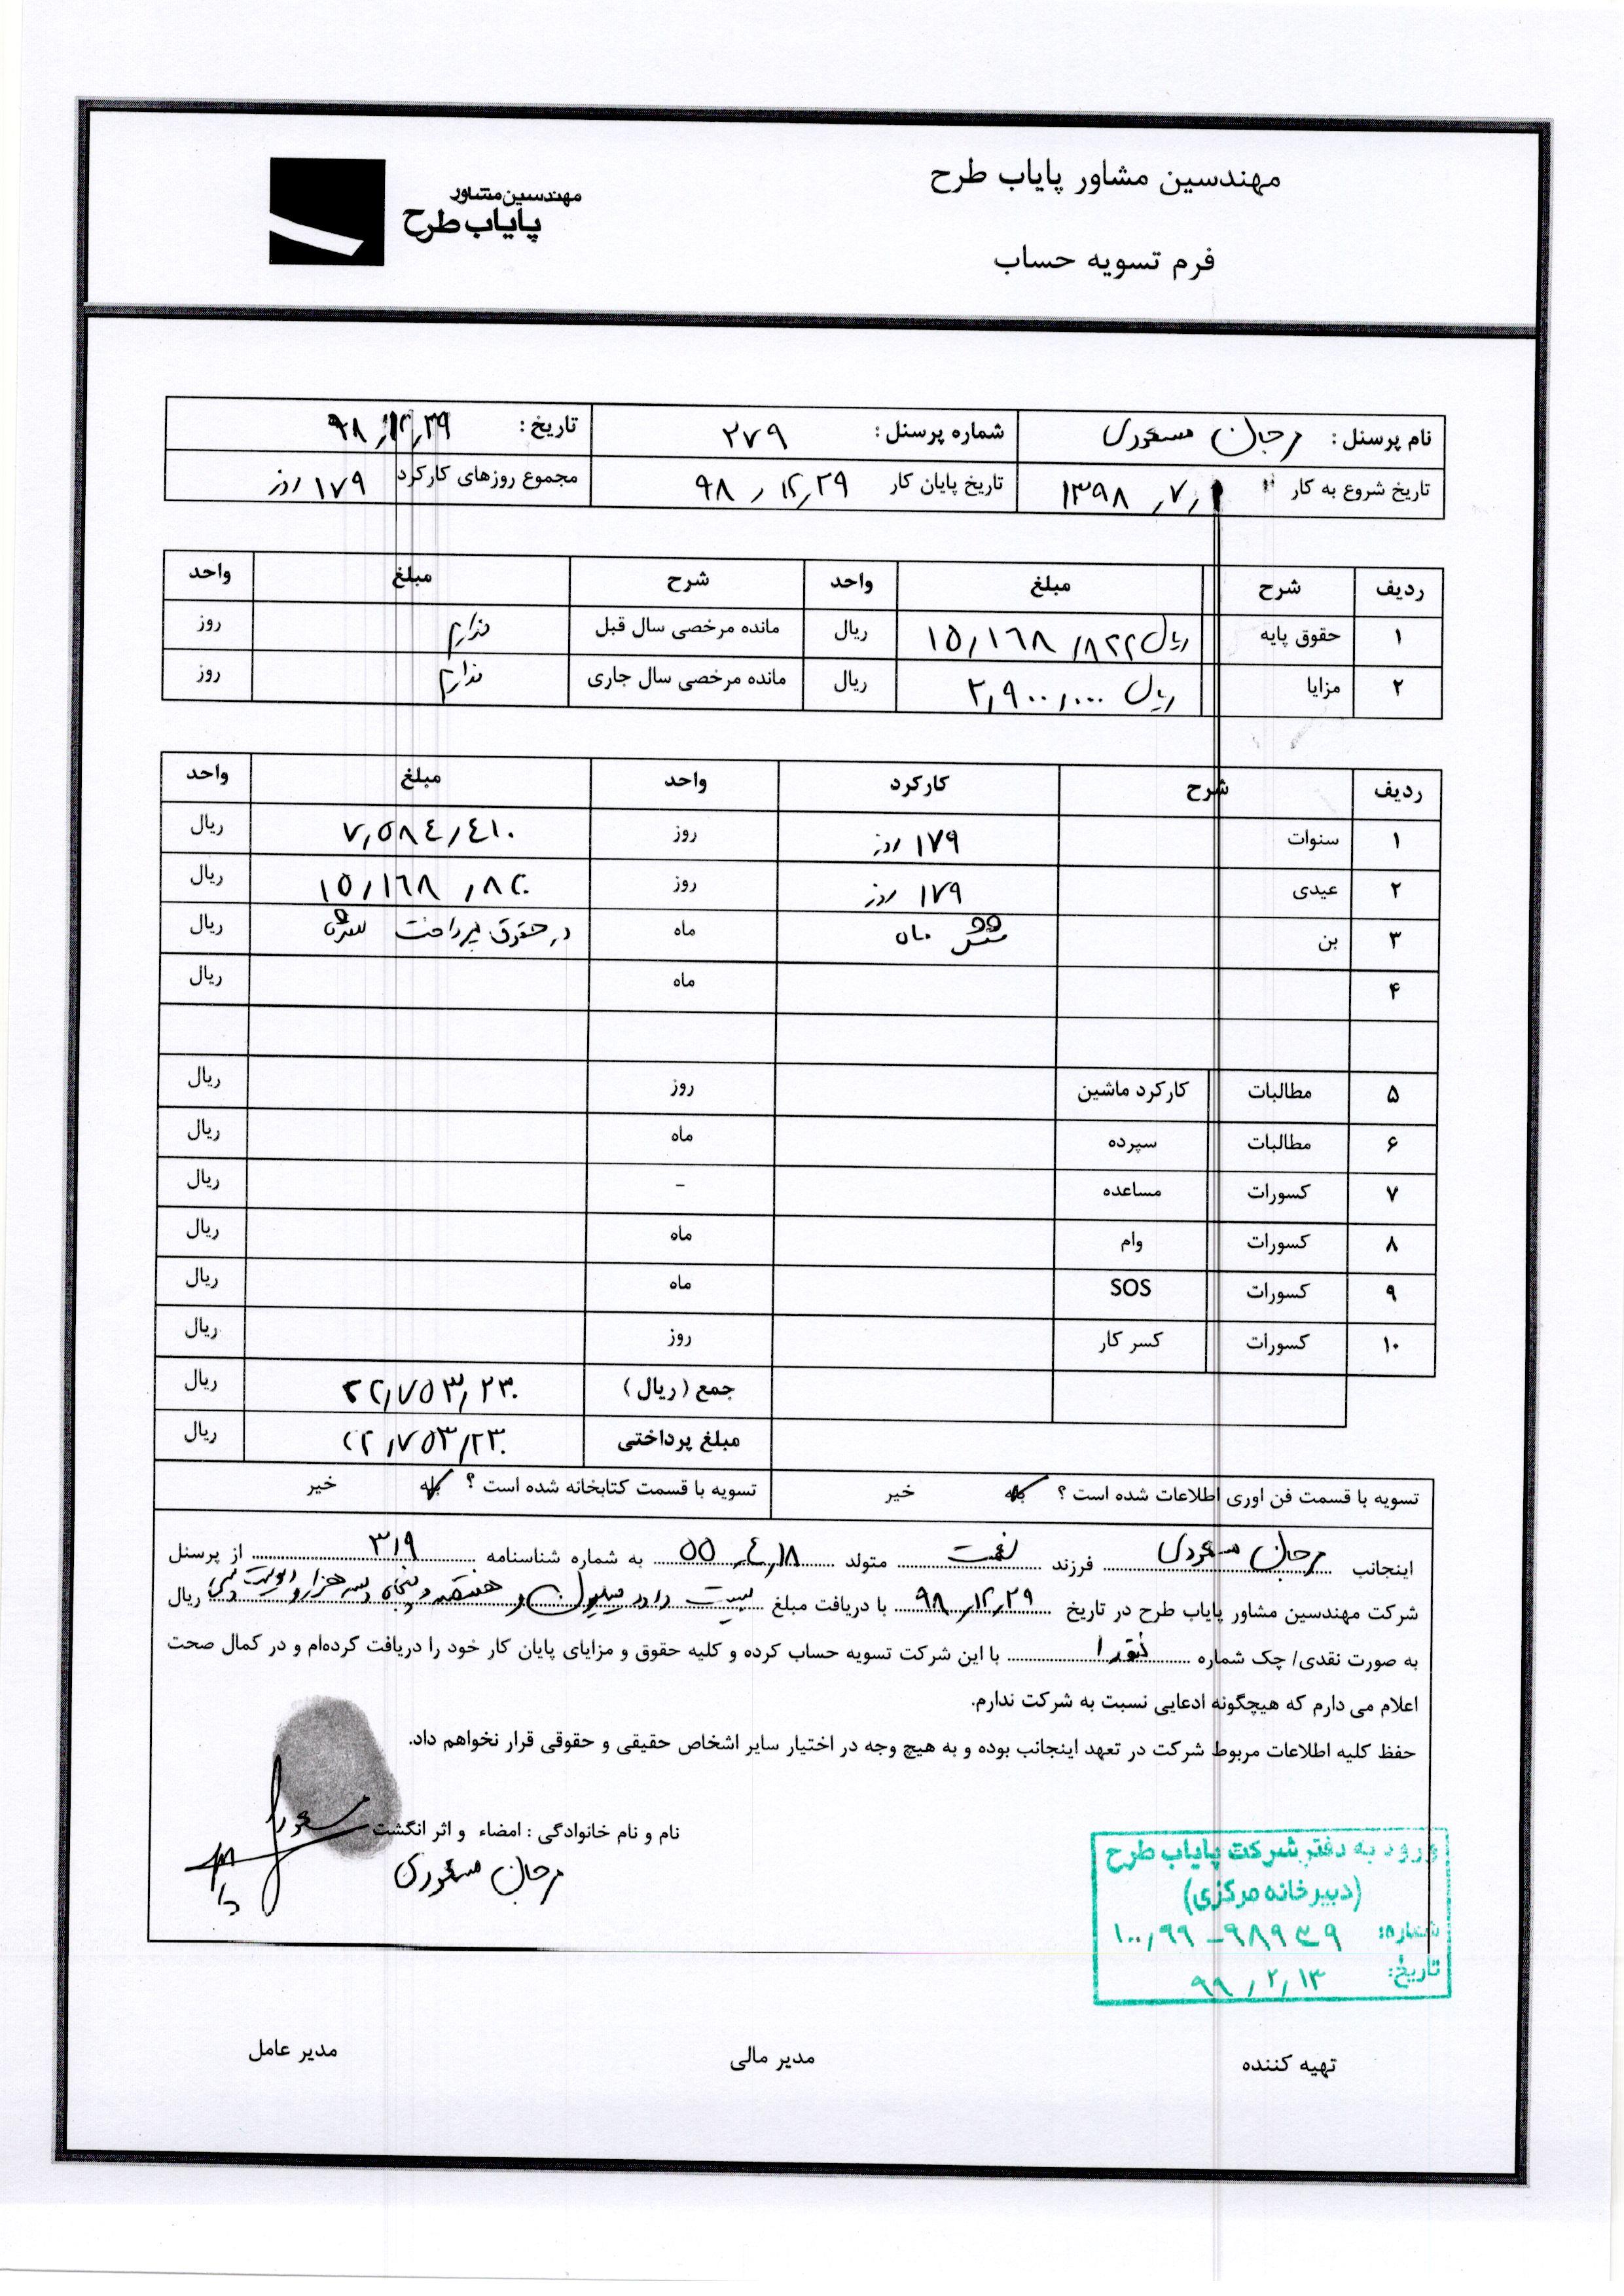 مهندسین مشاور پایاب طرح
مهندسین مشاور
پایاب طرح
فرم تسویه حساب
نام پرسنل : مرجان مسعودی شماره پرسنل : ۲۷۹ تاریخ : ۹۸,۱۲,۲۹
تاریخ شروع به کار ۱۳۹۸,۷,۱ تاریخ پایان کار ۹۸,۱۲,۲۹ مجموع روزهای کارکرد ۱۷۹ روز
ردیف شرح مبلغ واحد شرح مبلغ واحد
۱ حقوق پایه ۱۵,۱۶۸,۸۲۲ ریال ریال مانده مرخصی سال قبل ندارم روز
۲ مزایا ۲,۹۰۰,۰۰۰ ریال ریال مانده مرخصی سال جاری ندارم روز
ردیف شرح کارکرد واحد مبلغ واحد
۱ سنوات ۱۷۹ روز روز ۷,۵۸۴,۴۱۰ ریال
۲ عیدی ۱۷۹ روز روز ۱۵,۱۶۸,۸۲۰ ریال
۳ بن شش ماه ماه در حقوق پرداخت شده ریال
۴ ماه ریال
۵ مطالبات کارکرد ماشین روز ریال
۶ مطالبات سپرده ماه ریال
۷ کسورات مساعده - ریال
۸ کسورات وام ماه ریال
۹ کسورات SOS ماه ریال
۱۰ کسورات کسر کار روز ریال
جمع (ریال) ۲۲,۷۵۳,۲۳۰ ریال
مبلغ پرداختی ۲۲,۷۵۳,۲۳۰ ریال
تسویه با قسمت فن اوری اطلاعات شده است ؟ بله خیر تسویه با قسمت کتابخانه شده است ؟ بله خیر
اینجانب مرجان مسعودی فرزند نعمت متولد ۵۵,۴,۱۸ به شماره شناسنامه ۳۱۹ از پرسنل
شرکت مهندسین مشاور پایاب طرح در تاریخ ۹۸,۱۲,۲۹ با دریافت مبلغ بیست و دو میلیون و هفتصد و پنجاه و سه هزار و دویست و سی ریال
به صورت نقدی/ چک شماره نقداً با این شرکت تسویه حساب کرده و کلیه حقوق و مزایای پایان کار خود را دریافت کرده‌ام و در کمال صحت
اعلام می دارم که هیچگونه ادعایی نسبت به شرکت ندارم.
حفظ کلیه اطلاعات مربوط شرکت در تعهد اینجانب بوده و به هیچ وجه در اختیار سایر اشخاص حقیقی و حقوقی قرار نخواهم داد.
نام و نام خانوادگی : امضاء و اثر انگشت
مسعودی
مرجان مسعودی
ورود به دفتر شرکت پایاب طرح
(دبیرخانه مرکزی)
شماره: ۱۰۰,۹۹-۹۸۹۳۹
تاریخ: ۹۹,۲,۱۳
تهیه کننده مدیر مالی مدیر عامل